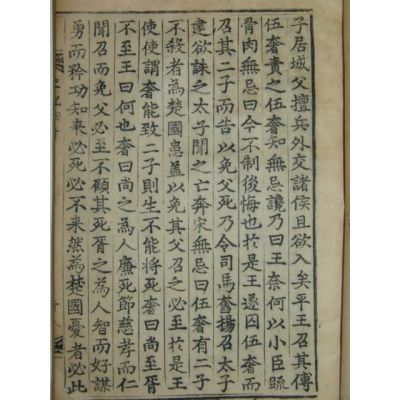 子居城父擅兵外交諸侯且欲入矣平王召其傅
伍奢責之伍奢知無忌讒乃曰王奈何以小臣䟽
骨肉無忌曰今不制後悔也於是王遂囚伍奢
召其二子而告以免父死乃令司馬奮揚召太子
建欲誅之太子聞之亡奔宋無忌曰伍奢有二子
不殺者為楚國患盍以免其父召之必至於是王
使使謂奢能致二子則生不能將死奢曰尚至胥
不至王曰何也奢曰尚之為人廉死節慈孝而仁
聞召而免父必至不顧其死胥之為人智而好謀
勇而矜功知來必死必不來然為楚國憂者必此